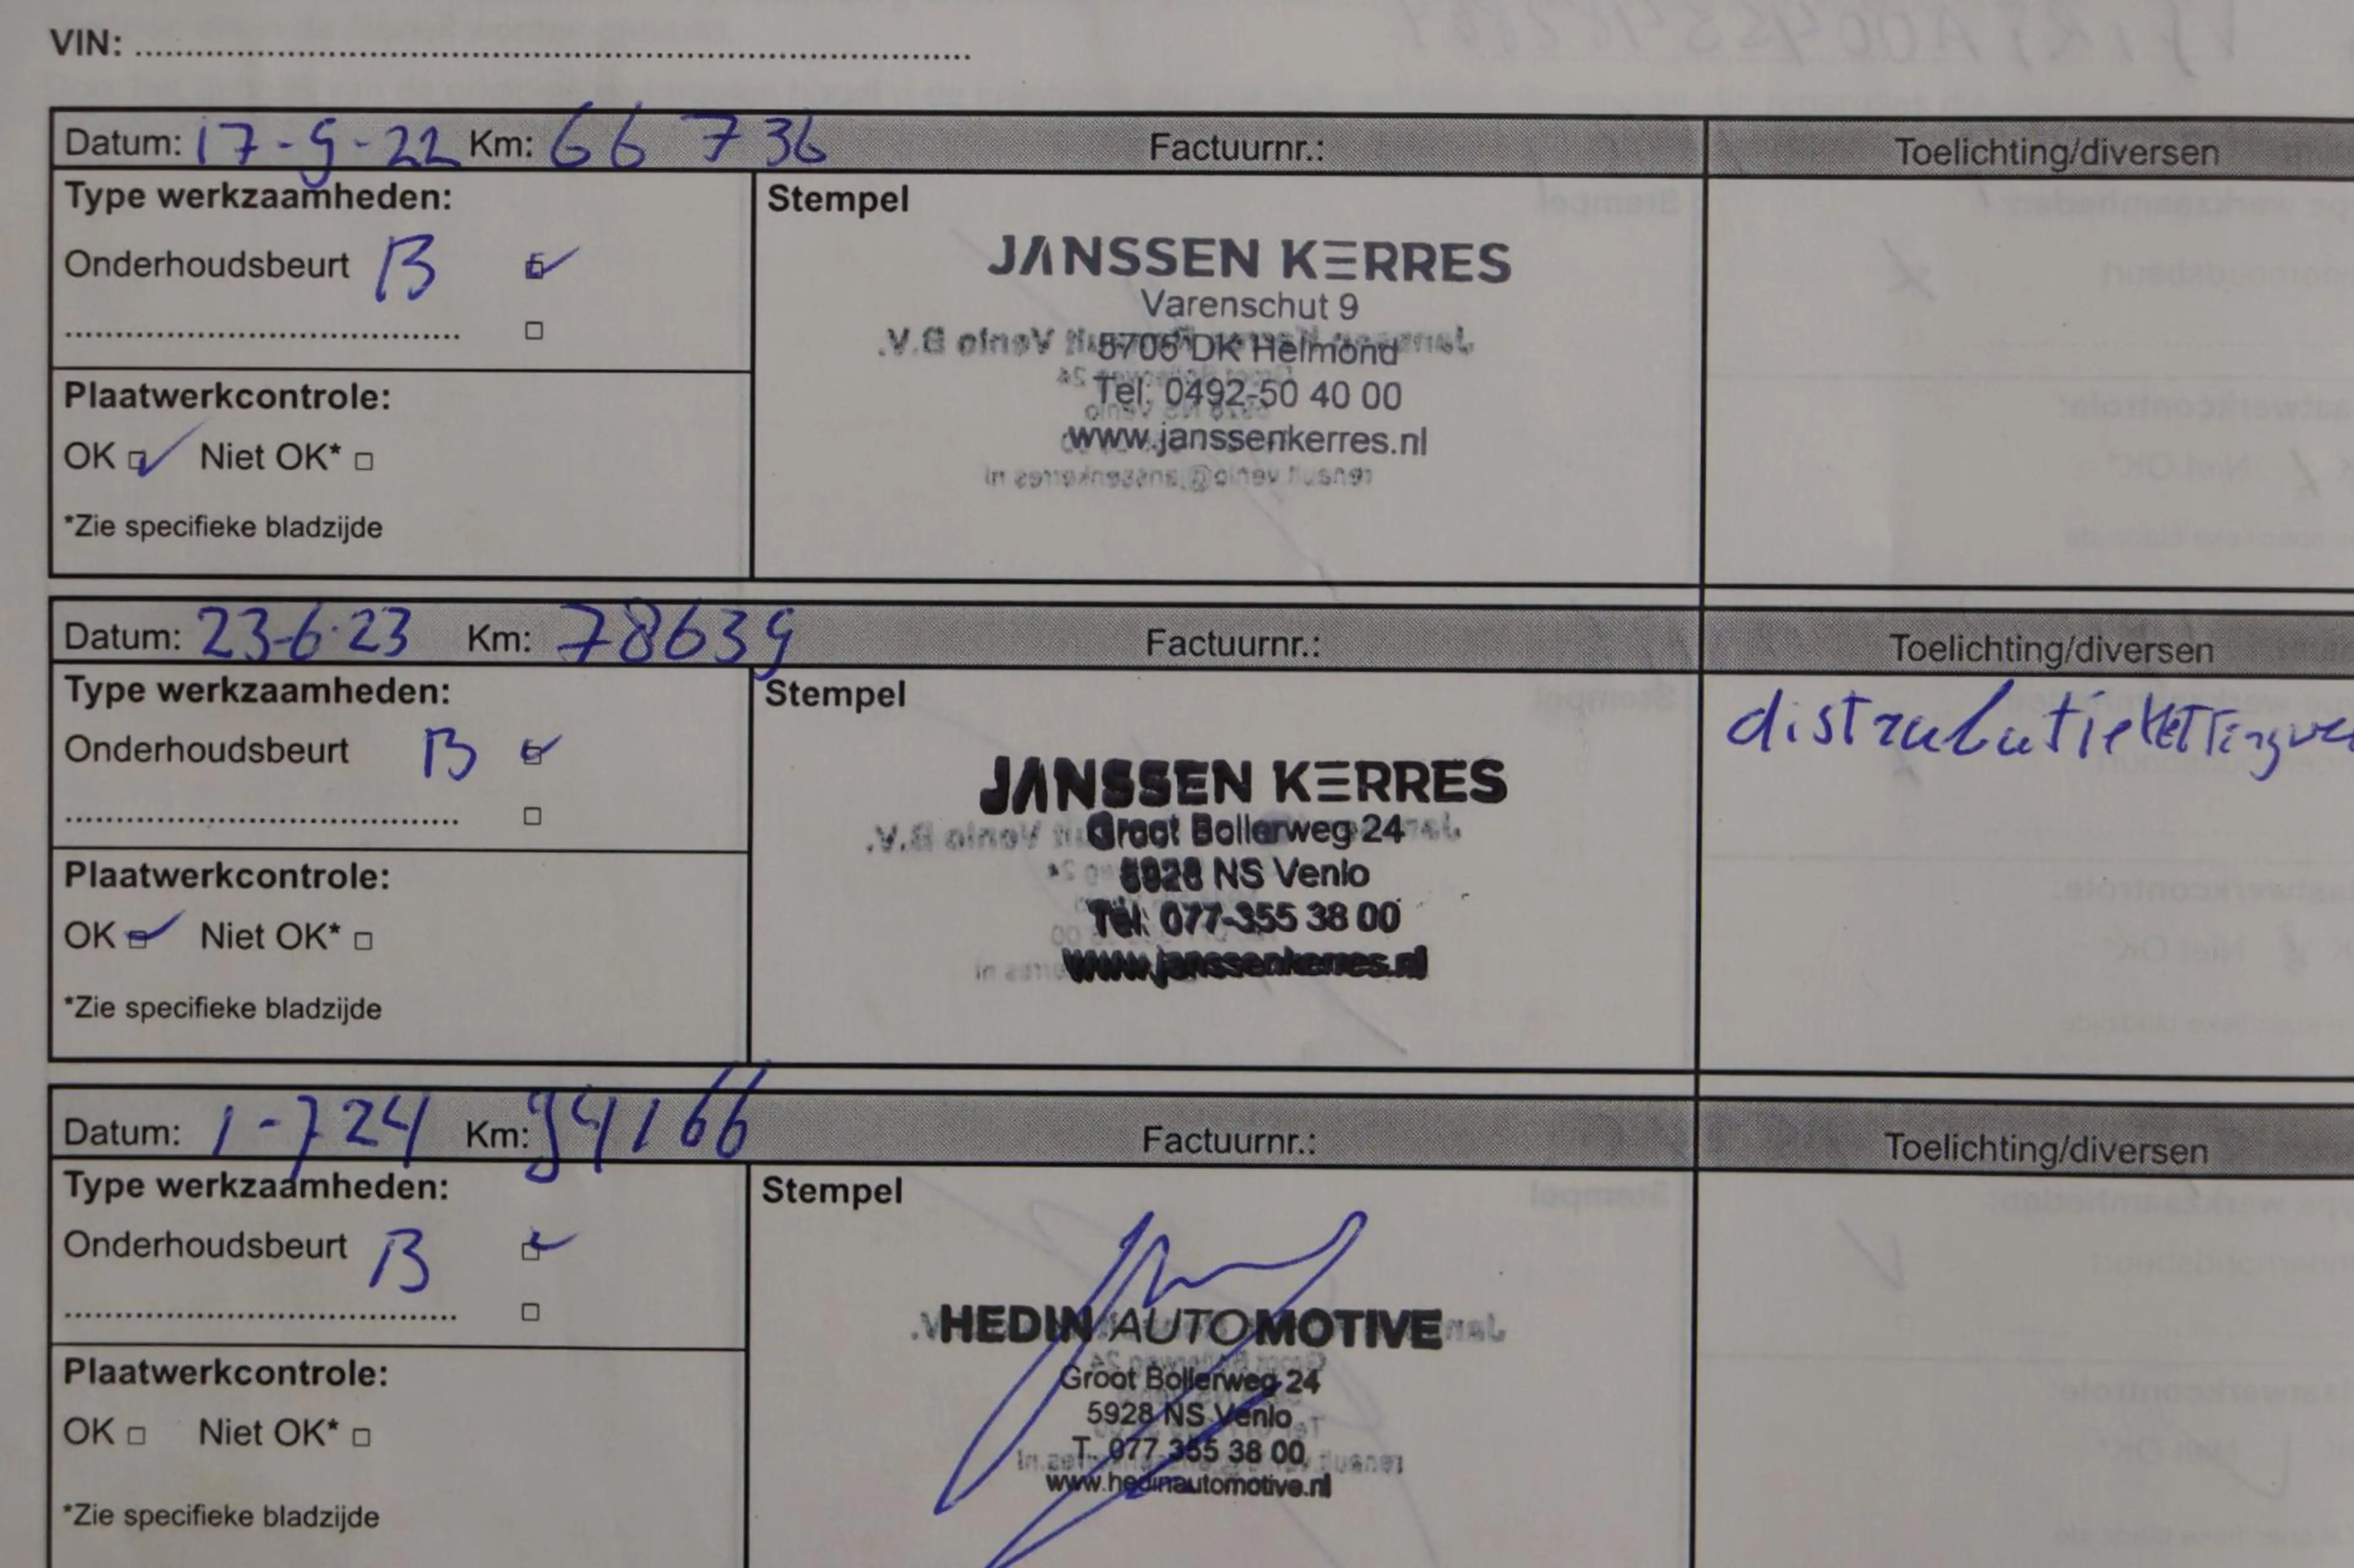 VIN: ........................................................................
Datum: 17-9-22 Km: 66 736 Factuurnr.: Toelichting/diversen
Type werkzaamheden:
Onderhoudsbeurt B
Plaatwerkcontrole:
OK Niet OK*
*Zie specifieke bladzijde
Stempel
JANSSEN KERRES
Varenschut 9
5706 DK Helmond
Tel: 0492-50 40 00
www.janssenkerres.nl
Datum: 23-6-23 Km: 78639 Factuurnr.: Toelichting/diversen
Type werkzaamheden:
Onderhoudsbeurt B
Plaatwerkcontrole:
OK Niet OK*
*Zie specifieke bladzijde
Stempel
JANSSEN KERRES
Groot Bollerweg 24
5928 NS Venlo
Tel: 077-355 38 00
www.janssenkerres.nl
Datum: 1-7 24 Km: 94166 Factuurnr.: Toelichting/diversen
Type werkzaamheden:
Onderhoudsbeurt B
Plaatwerkcontrole:
OK Niet OK*
*Zie specifieke bladzijde
Stempel
HEDIN AUTOMOTIVE
Groot Bollerweg 24
5928 NS Venlo
T. 077 355 38 00
www.hedinautomotive.nl